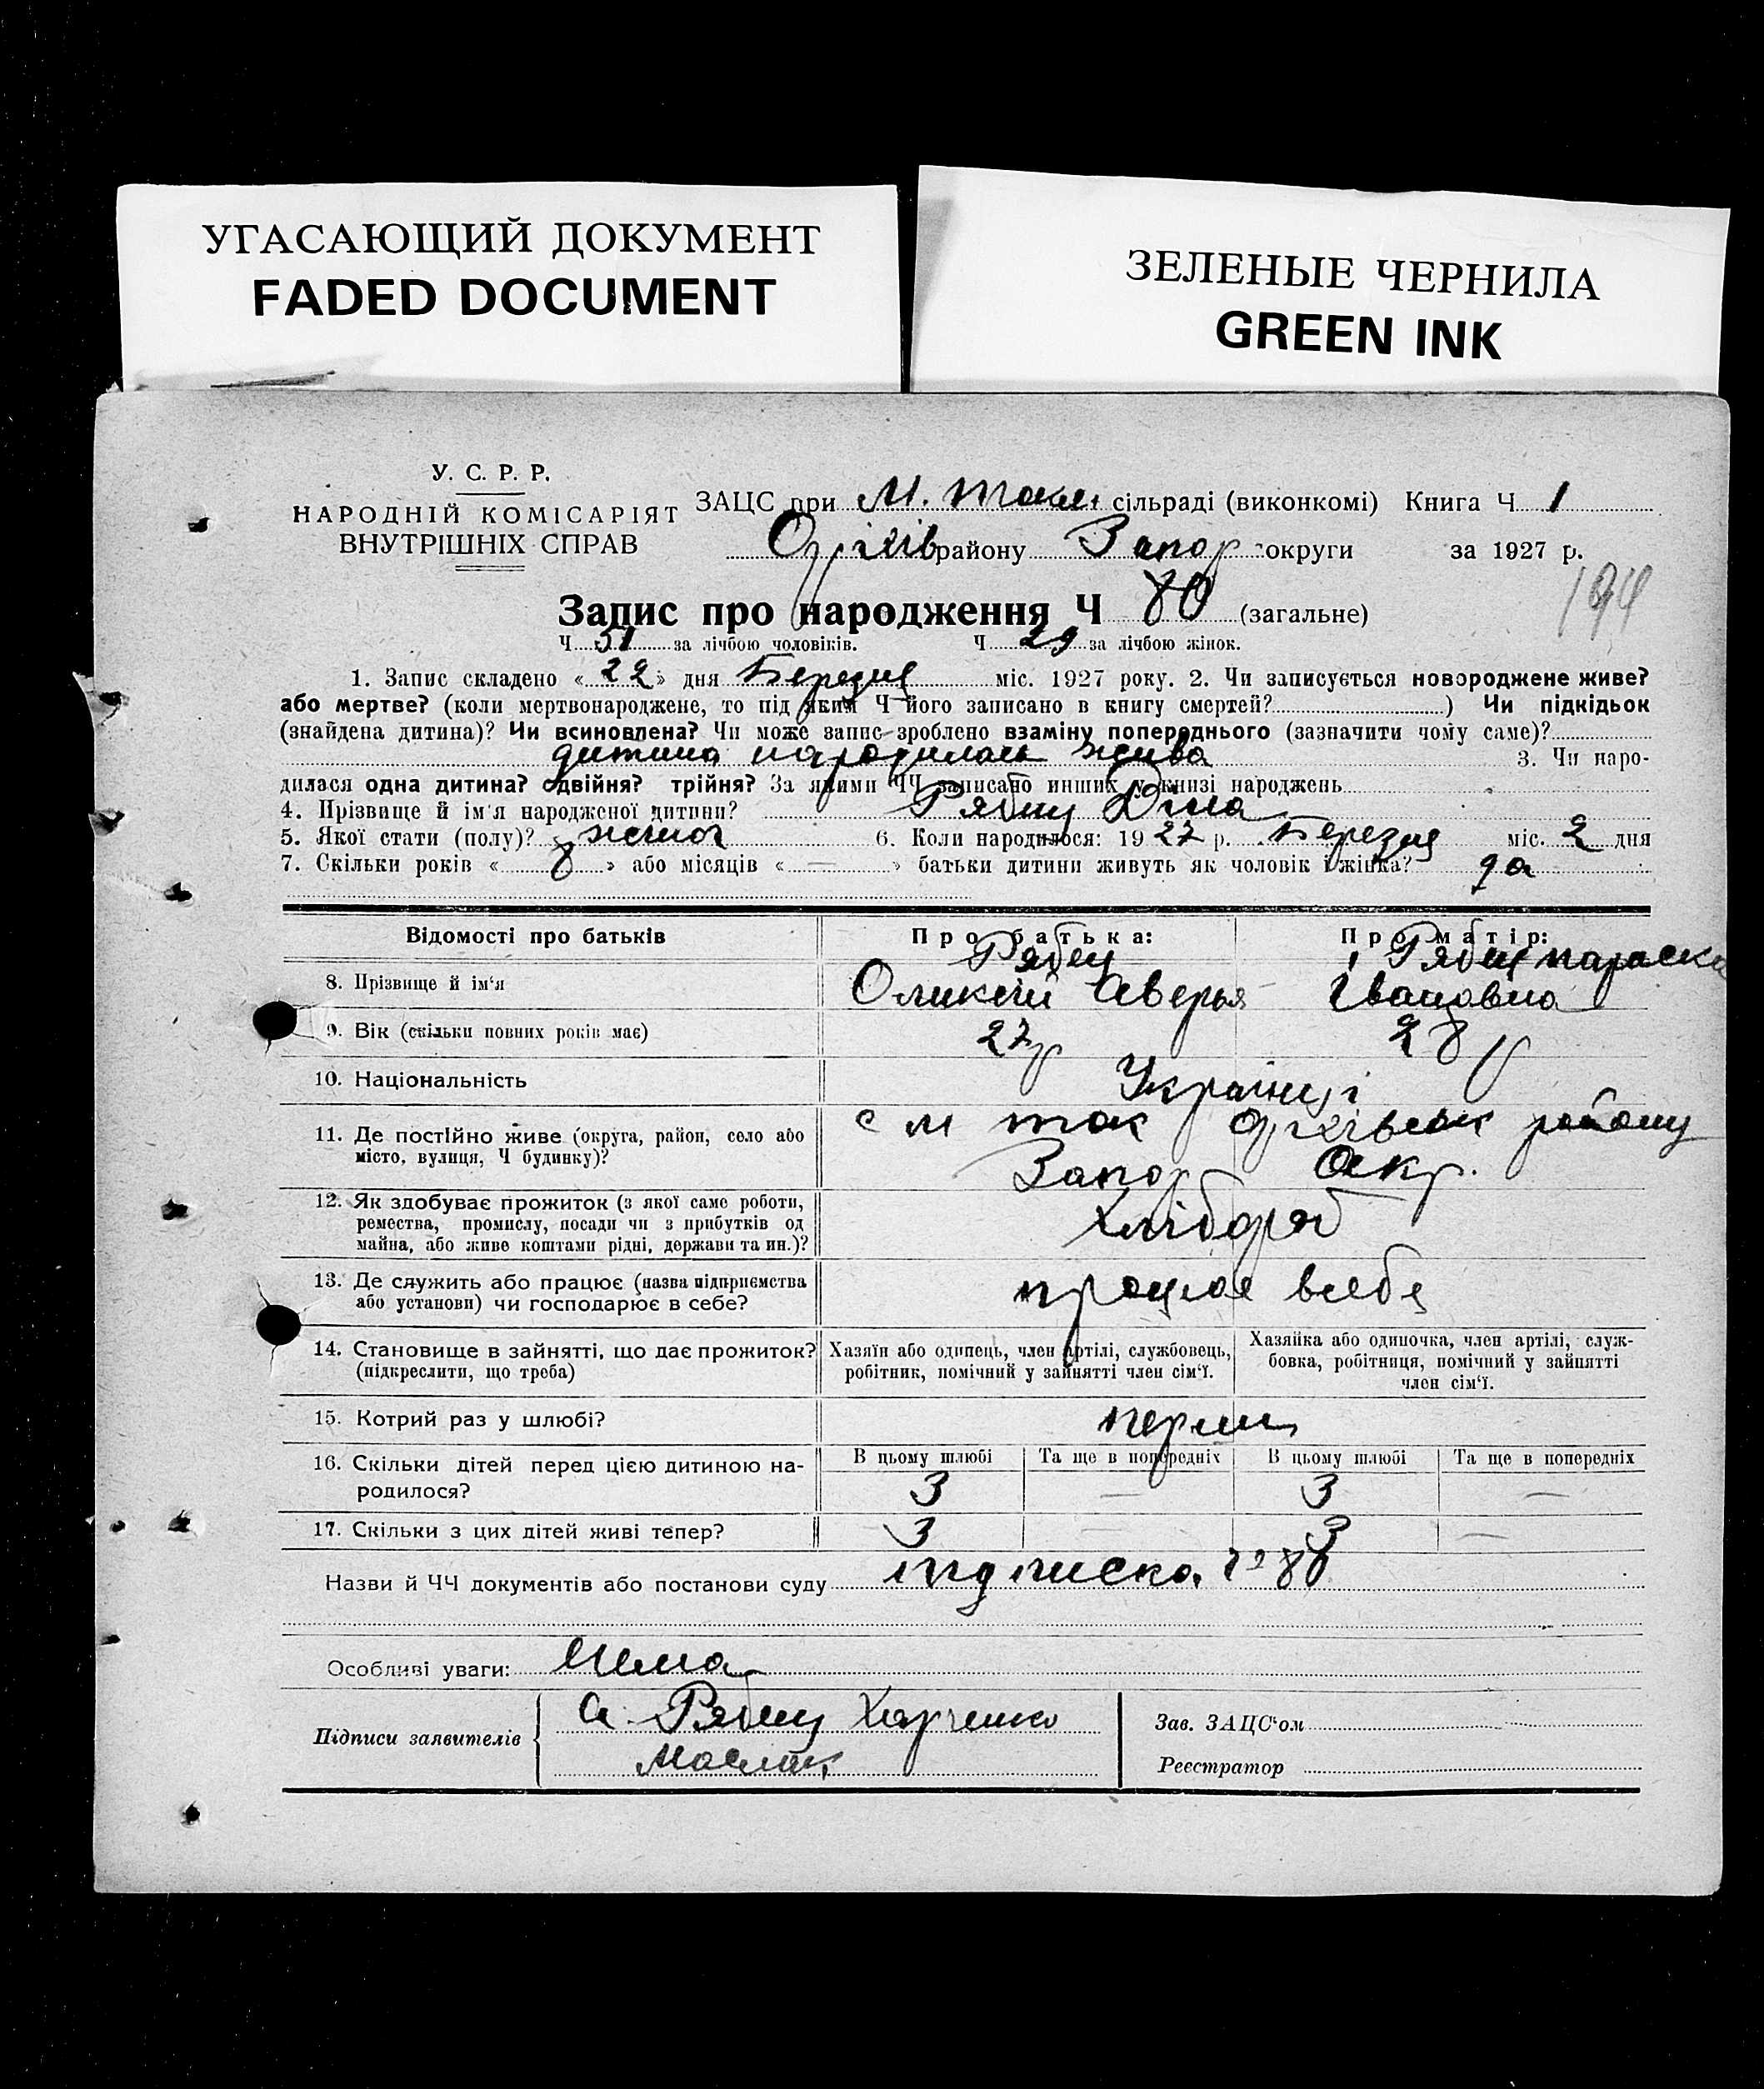 УГАСАЮЩИЙ ДОКУМЕНТ
FADED DOCUMENT
ЗЕЛЕНЫЕ ЧЕРНИЛА
GREEN INK
У. С. Р. Р.
НАРОДНІЙ КОМІСАРІЯТ
ВНУТРІШНІХ СПРАВ
ЗАЦС при М. Ток. сільраді (виконкомі) Книга Ч 1
Оріхів району Запор округи за 1927 р.
194
Запис про народження Ч 80 (загальне)
Ч 51 за лічбою чоловіків. Ч 29 за лічбою жінок.
1. Запис складено «22» дня Березня міс. 1927 року. 2. Чи записується новороджене живе?
або мертве? (коли мертвонароджене, то під яким Ч його записано в книгу смертей?) Чи підкідьок
(знайдена дитина)? Чи всиновлена? Чи може запис зроблено взаміну попереднього (зазначити чому саме)?
дитина народилась жива 3. Чи наро-
дилася одна дитина? двійня? трійня? За якими ЧЧ записано инших у книзі народжень
4. Прізвище й ім'я народженої дитини? Рябец
5. Якої стати (полу)? жіноч 6. Коли народилося: 1927 р. Березня міс. 2 дня
7. Скільки років « 8 » або місяців « — » батьки дитини живуть як чоловік і жінка? да
Відомості про батьків
Про батька:
Про матір:
8. Прізвище й ім'я
Рябец
Олексій Аверья
Рябец Параска
Івановна
9. Вік (скільки повних років має) 27 р 28 р
10. Національність Українці
11. Де постійно живе (округа, район, село або
місто, вулиця, Ч будинку)?
с М Ток Оріхівськ району
Запор Окр.
12. Як здобуває прожиток (з якої саме роботи,
ремества, промислу, посади чи з прибутків од
майна, або живе коштами рідні, держави та ин.)?
Хлібороб
13. Де служить або працює (назва підприємства
або установи) чи господарює в себе?
працює всебе
14. Становище в зайнятті, що дає прожиток?
(підкреслити, що треба)
Хазяїн або одинець, член артілі, службовець,
робітник, помічний у зайнятті член сім'ї.
Хазяйка або одиночка, член артілі, служ-
бовка, робітниця, помічний у зайнятті
член сім'ї.
15. Котрий раз у шлюбі? перший
16. Скільки дітей перед цією дитиною на-
родилося?
В цьому шлюбі Та ще в попередніх В цьому шлюбі Та ще в попередніх
3 — 3 —
17. Скільки з цих дітей живі тепер? 3 — 3 —
Назви й ЧЧ документів або постанови суду підписка
Особливі уваги: Нема
Підписи заявителів
А. Рябец Харченко
Зав. ЗАЦС'ом
Реєстратор